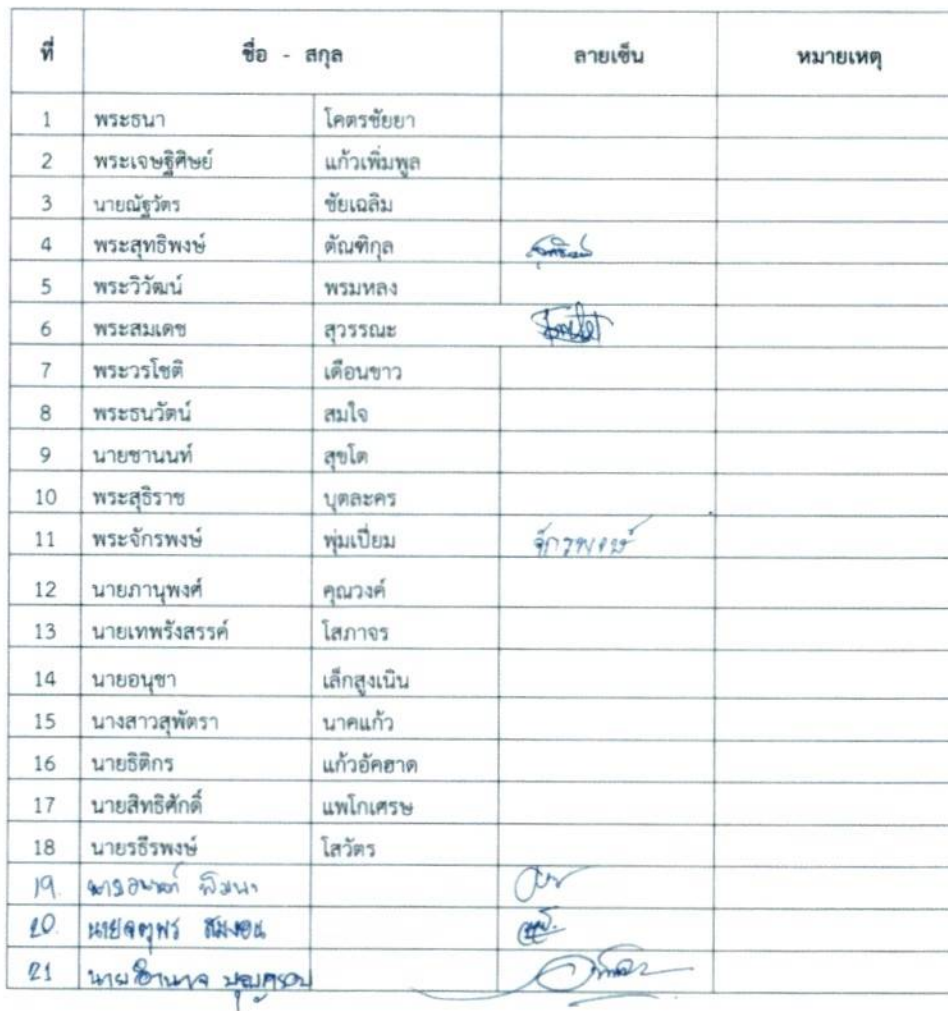 ที่ ชื่อ - สกุล ลายเซ็น หมายเหตุ
1 พระธนา โคตรชัยยา
2 พระเจษฐิศิษย์ แก้วเพิ่มพูล
3 นายณัฐวัตร ชัยเฉลิม
4 พระสุทธิพงษ์ ตัณฑิกุล
5 พระวิวัฒน์ พรมหลง
6 พระสมเดช สุวรรณะ
7 พระวรโชติ เดือนขาว
8 พระธนวัตน์ สมใจ
9 นายชานนท์ สุขโต
10 พระสุธิราช บุตละคร
11 พระจักรพงษ์ พุ่มเปี่ยม จักรพงษ์
12 นายภานุพงศ์ คุณวงค์
13 นายเทพรังสรรค์ โสภาจร
14 นายอนุชา เล็กสูงเนิน
15 นางสาวสุพัตรา นาคแก้ว
16 นายธิติกร แก้วอัคฮาด
17 นายสิทธิศักดิ์ แพโกเศรษ
18 นายรธีรพงษ์ โสวัตร
19.
20. นายจตุพร
21 นายอำนาจ